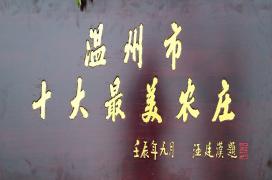 温州市
十大最美农庄
壬辰年九月 汪廷汉题